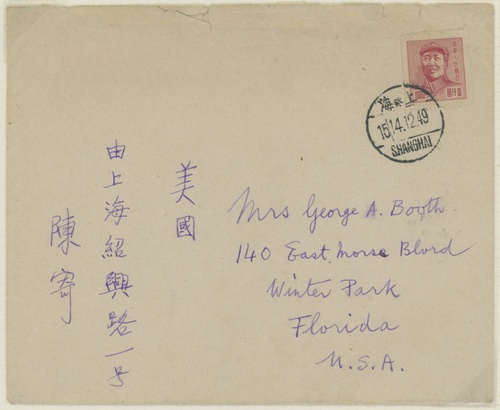 海 上
15 14.12.49
SHANGHAI
美國
由上海紹興路一号
陳寄
Mrs George A. Booth.
140 East Morse Blvrd
Winter Park
Florida
U.S.A.